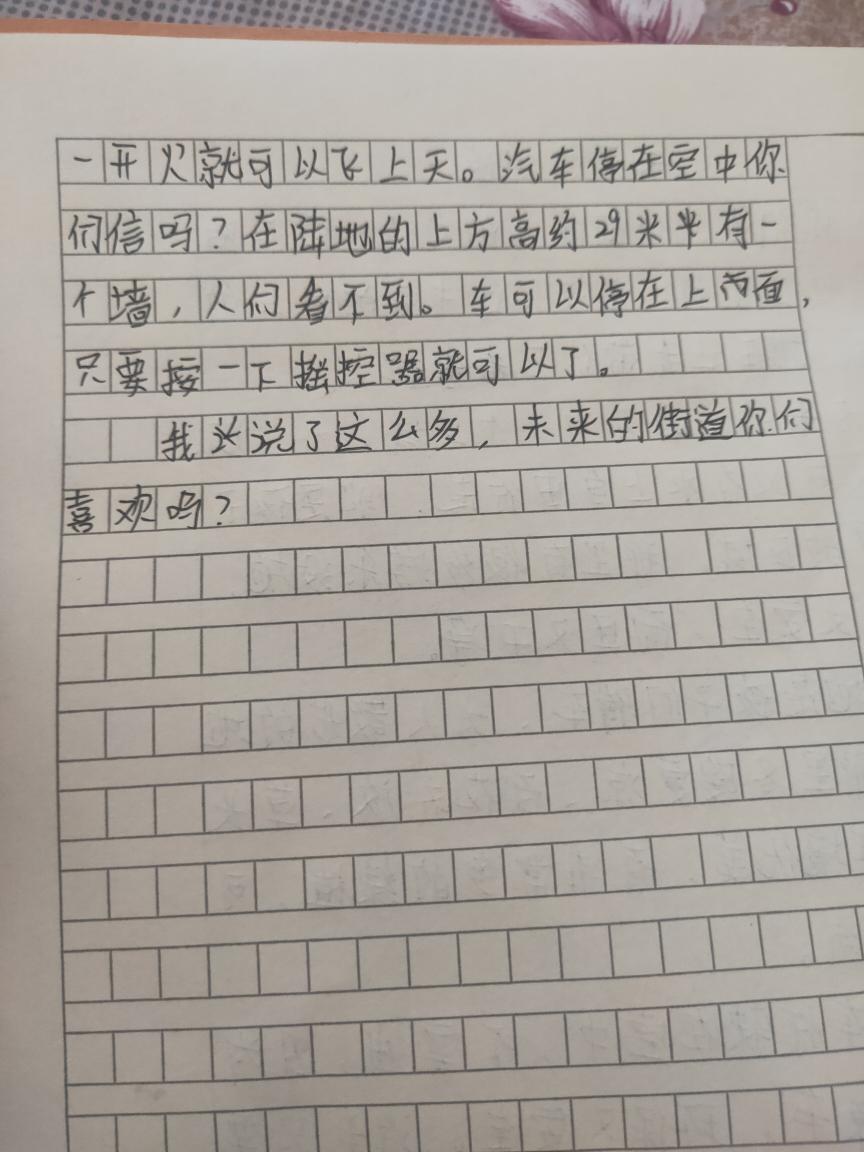 一开火就可以飞上天。汽车停在空中你
们信吗？在陆地的上方高约29米半有一
个墙，人们看不到。车可以停在上面，
只要按一下摇控器就可以了。
我说了这么多，未来的街道你们
喜欢吗？